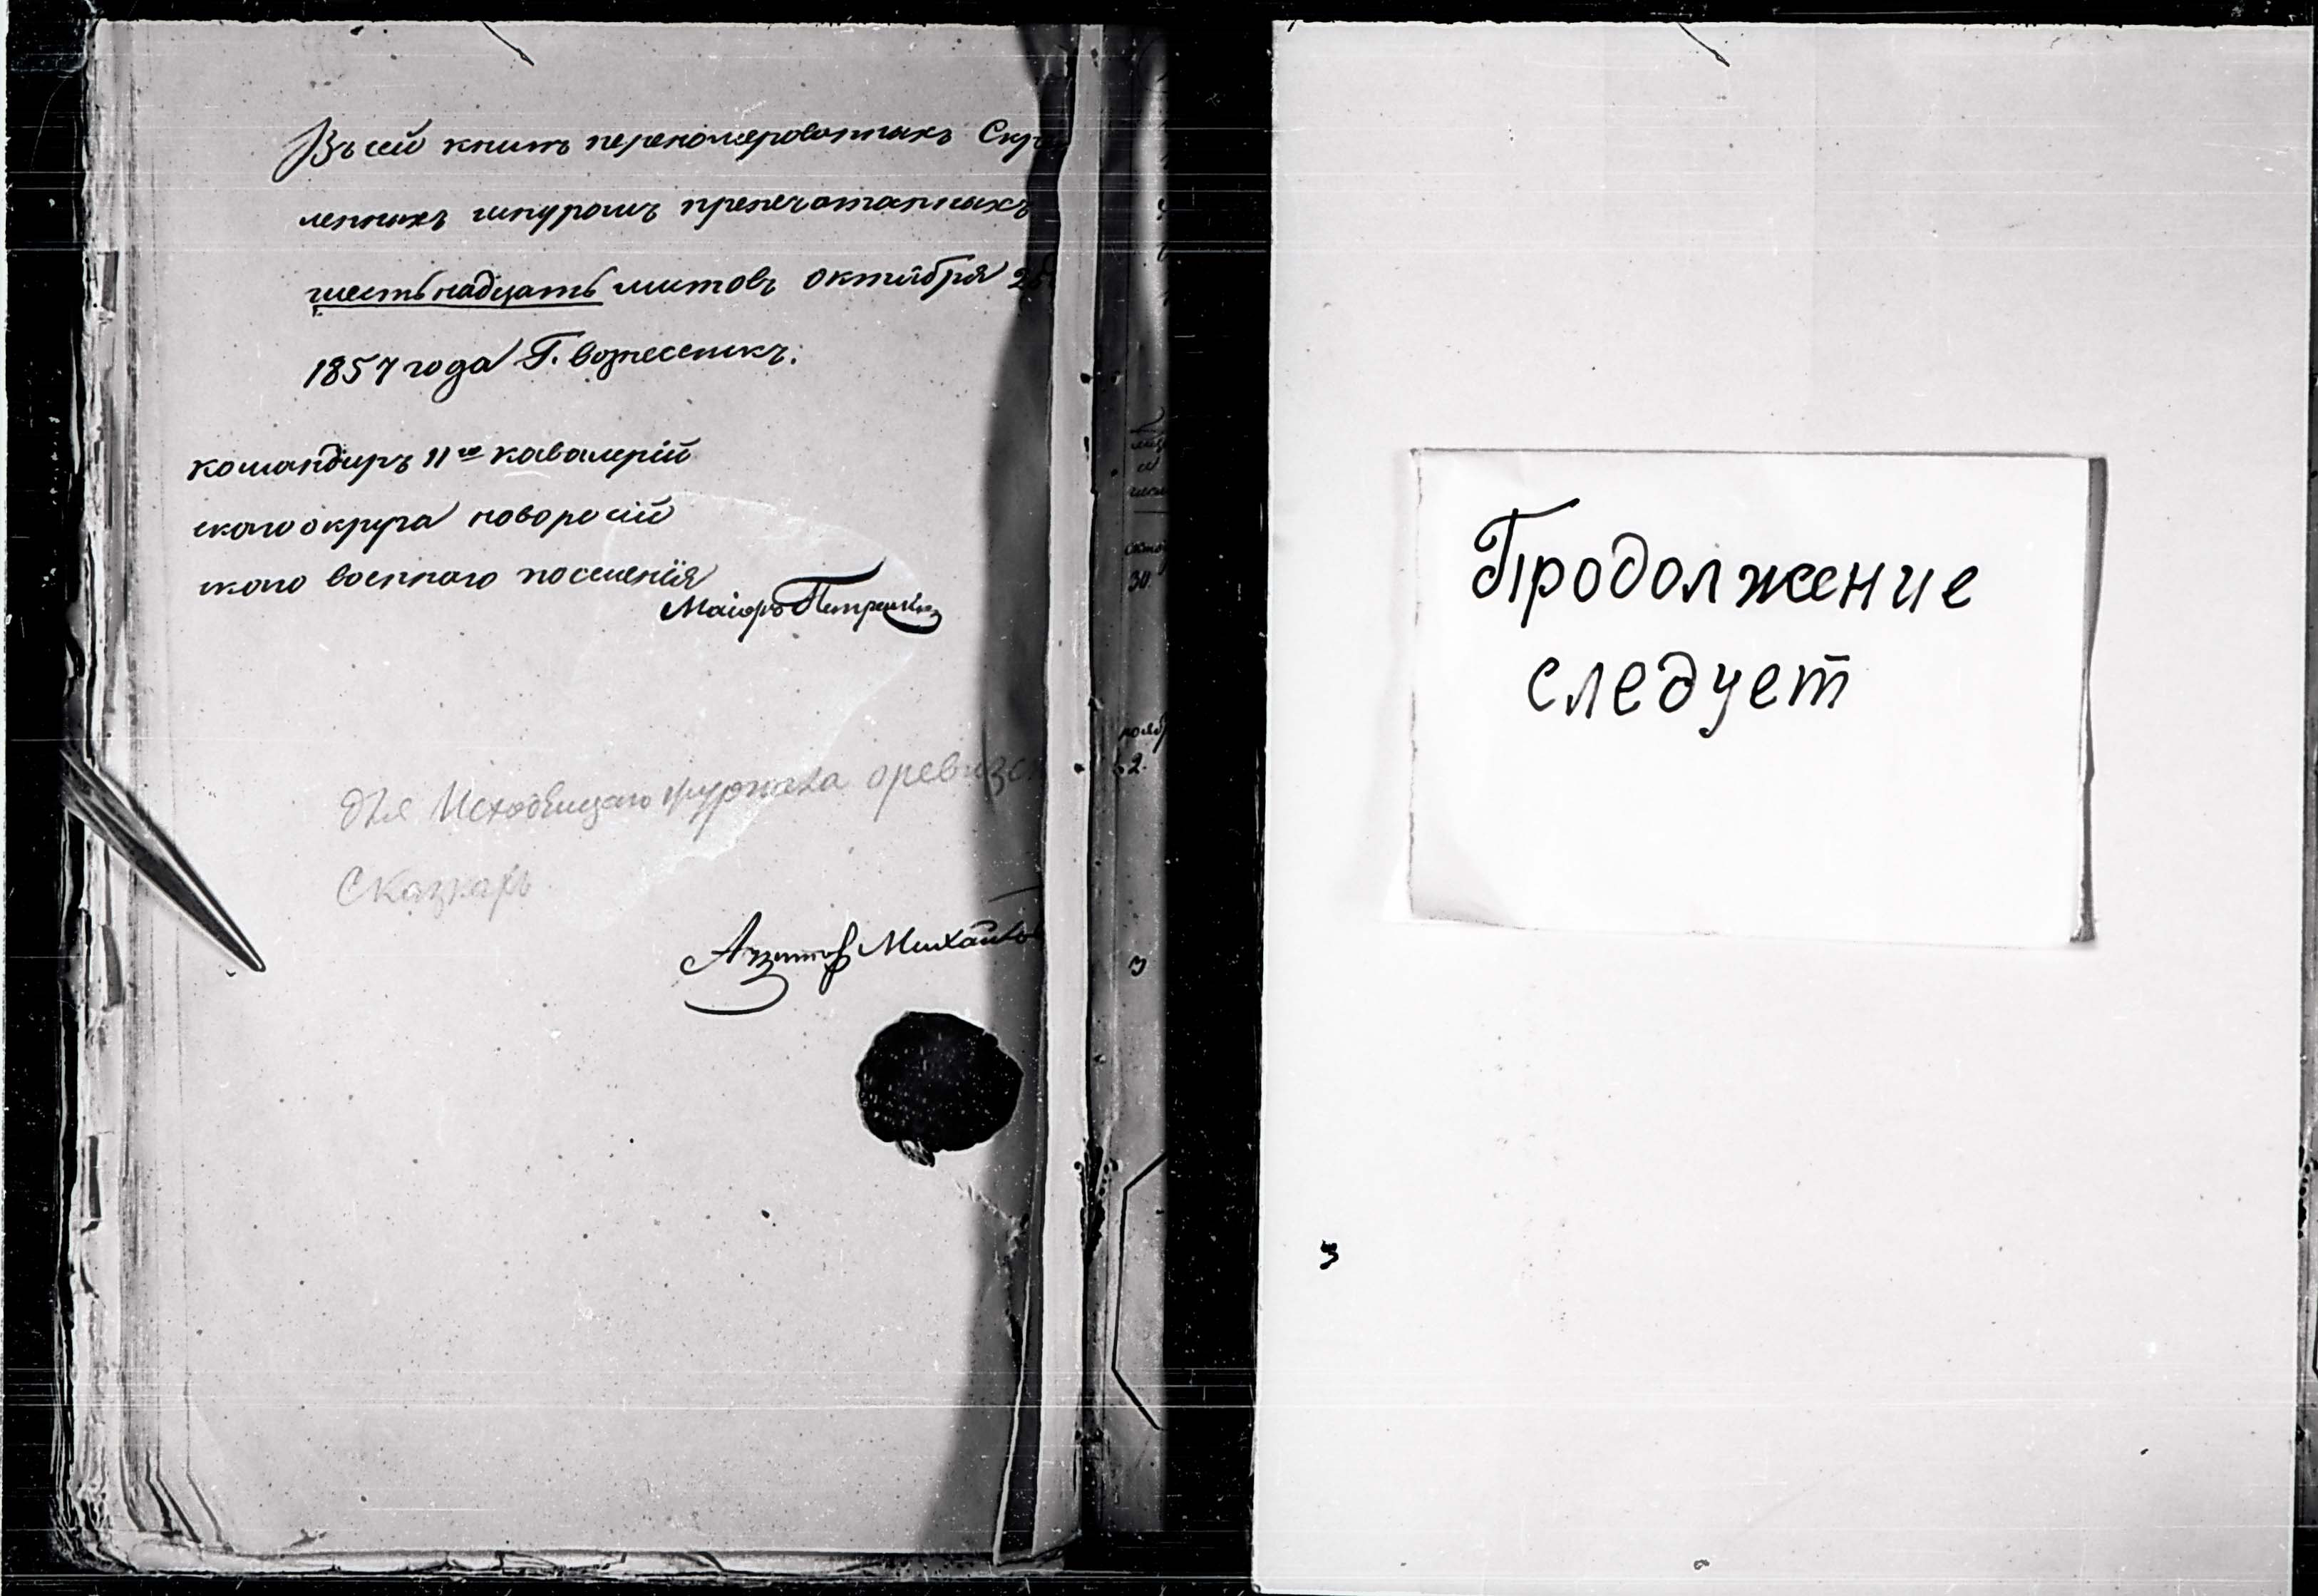 Въ сей книге переномерованныхъ Скре
пленныхъ шнуромъ препечатанныхъ
шестьнадцать листовъ октября 25
1857 года Г. вознесенскъ.
командиръ 11го кавалерій
скаго округа новоросій
скаго военнаго поселенія
Маіоръ
для Исходящаго журнала оревизс
Сказкахъ
Михайлов
30.
2.
Продолжение
следует